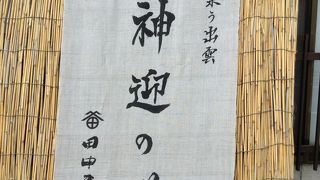 う出雲
神迎の
田中